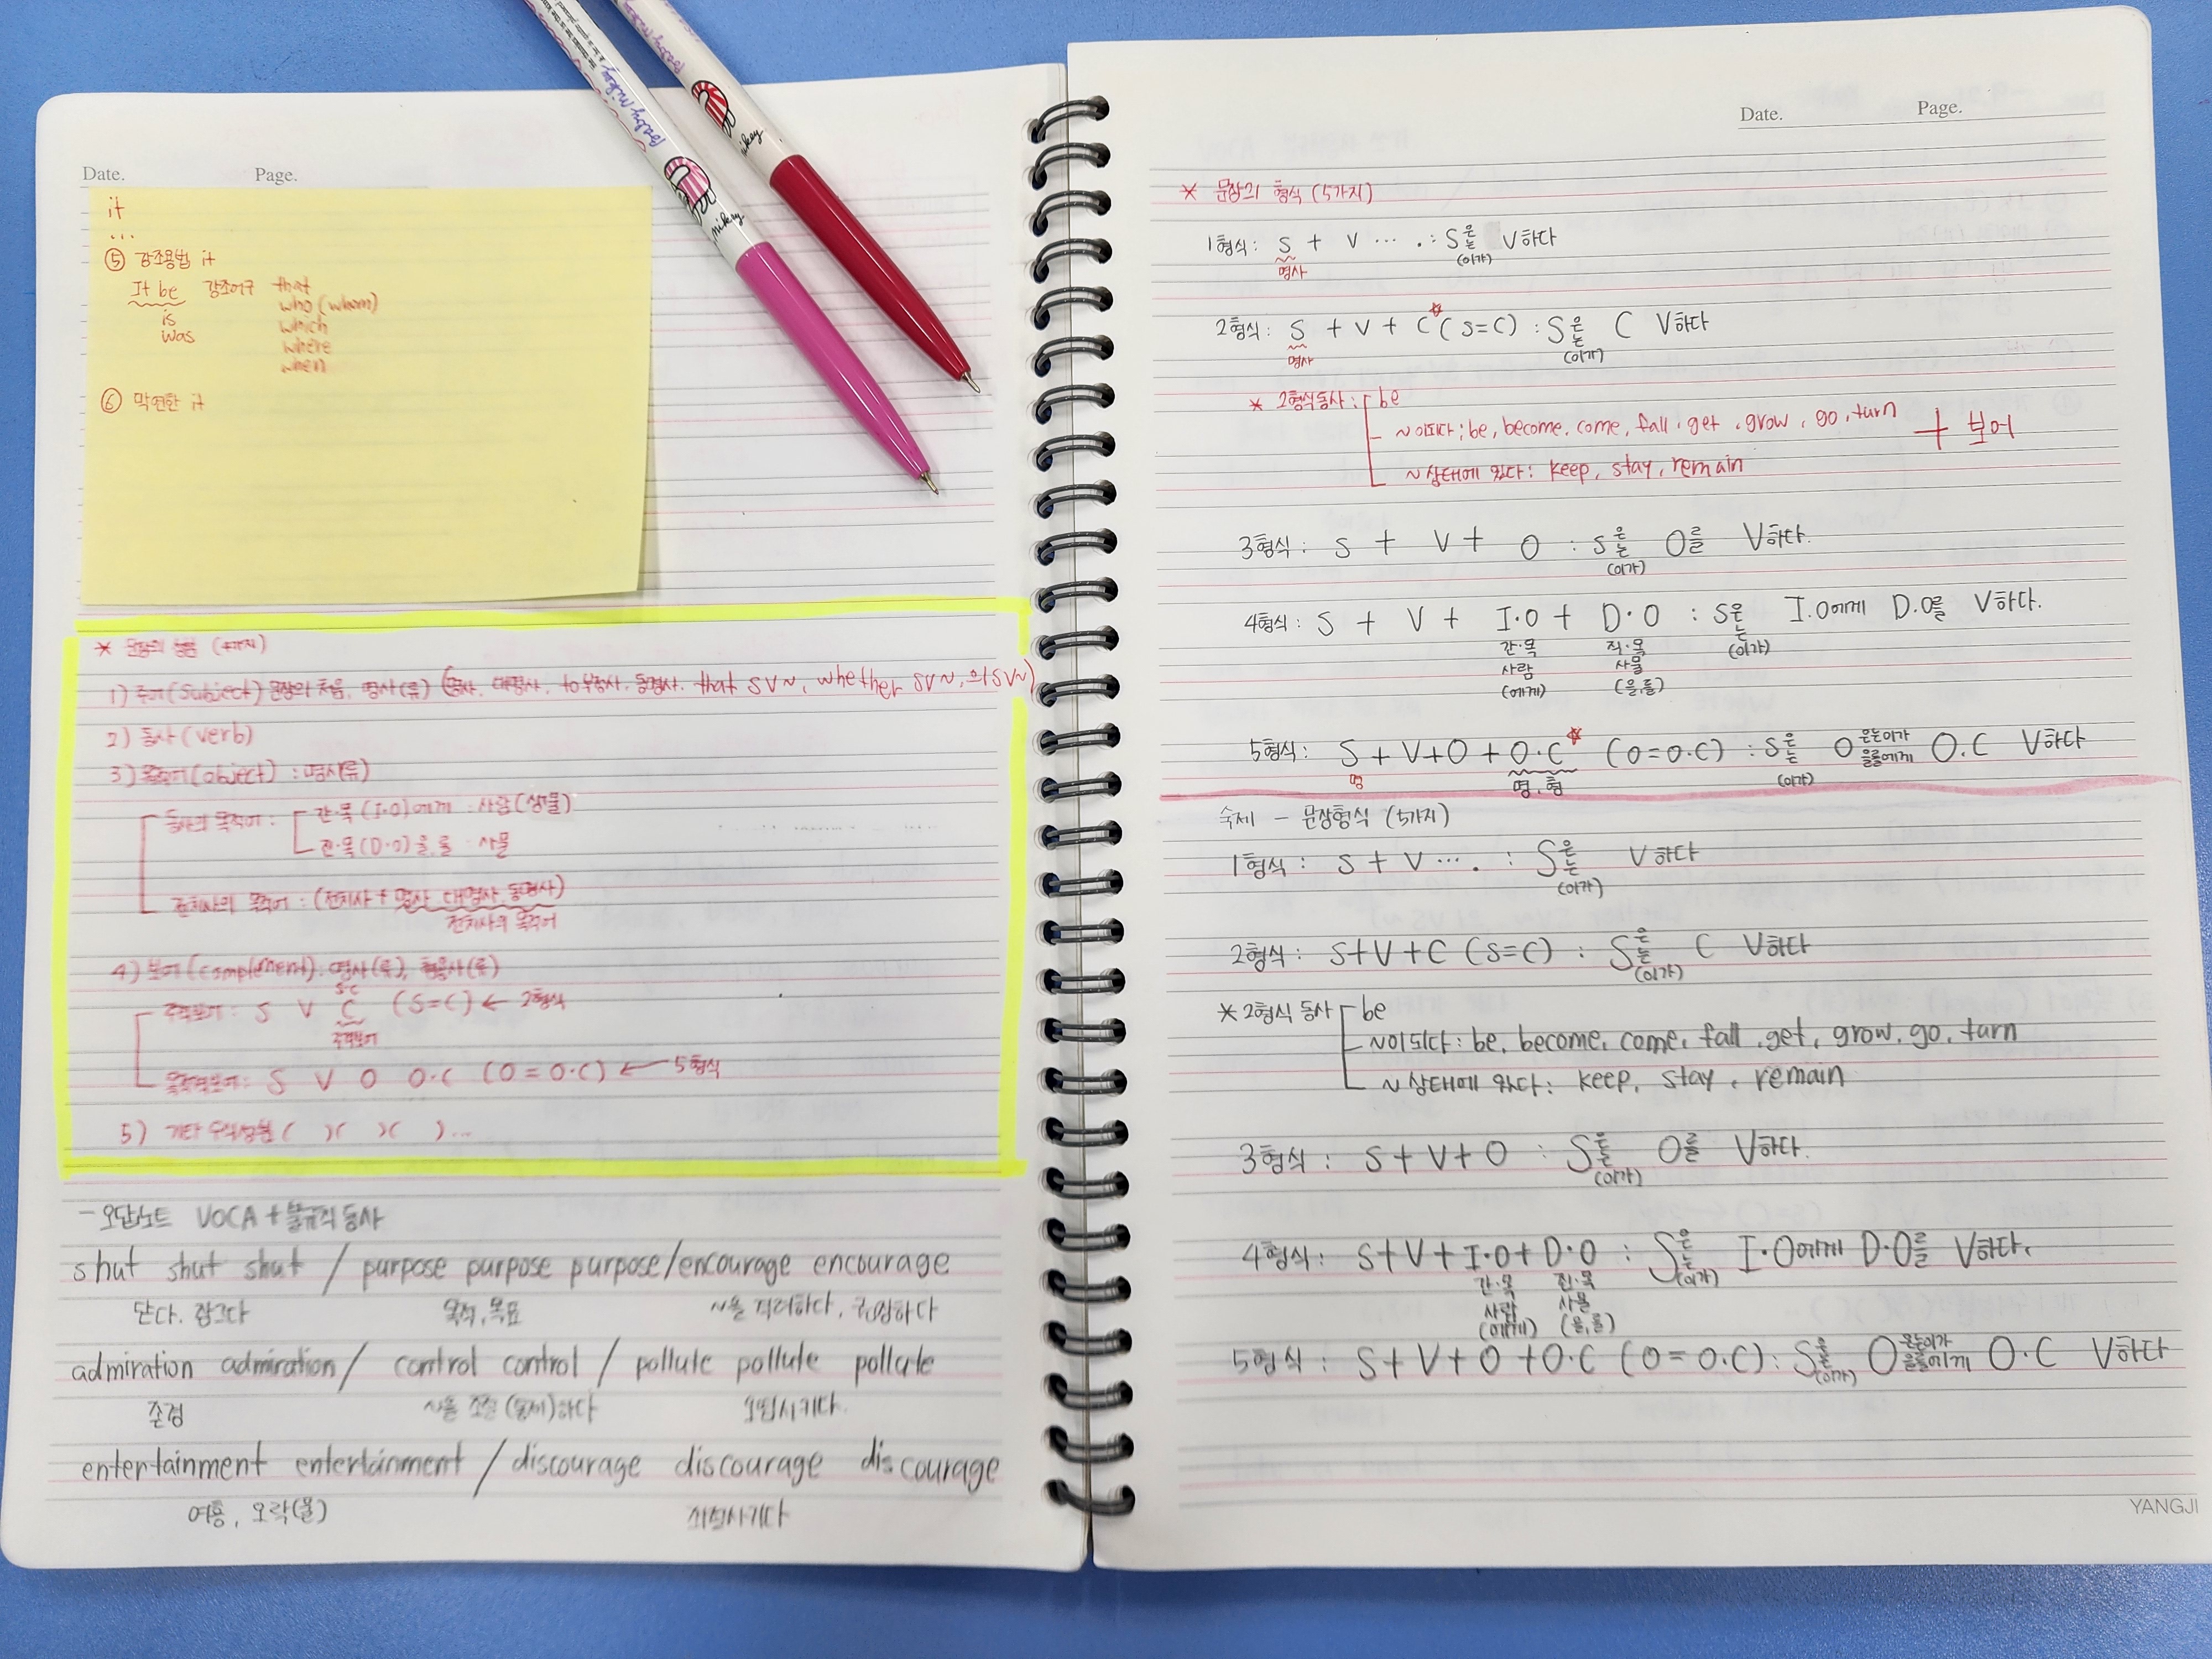 Date. Page.
it
...
⑤ 강조용법 it
It be 강조어구 that
is who (whom)
was which
where
when
⑥ 막연한 it
* 문장의 성분
1) 주어(subject) 문장의 처음, 명사(류) (명사, 대명사, to부정사, 동명사, that SV~, whether SV~, 의SV~)
2) 동사(verb)
3) 목적어(object) : 명사(류)
동사의 목적어 : 간·목(I·O)에게 : 사람(생물)
직·목(D·O)을,를 : 사물
전치사의 목적어 : (전치사 + 명사, 대명사, 동명사)
전치사의 목적어
4) 보어(complement): 명사(류), 형용사(류)
S·C
주격보어 : S V C (S=C) ← 2형식
주격보어
목적격보어 : S V O O·C (O = O·C) ← 5형식
5) 기타 수식성분 ( )( )( )...
- 오답노트 VOCA + 불규칙 동사
shut shut shut / purpose purpose purpose/encourage encourage
닫다, 잠그다 목적, 목표 ~을 격려하다,
admiration admiration / control control / pollute pollute pollute
존경 ~을 조절(통제)하다 오염시키다.
entertainment entertainment / discourage discourage discourage
여흥, 오락(물)
Date. Page.
* 문장의 형식 (5가지)
1형식 : S + V ... . : S은는(이가) V하다
명사
2형식 : S + V + C (S=C) : S은는(이가) C V하다
명사
* 2형식동사 : be
~이되다 ; be, become, come, fall, get, grow, go, turn + 보어
~상태에 있다 : keep, stay, remain
3형식 : S + V + O : S은는(이가) O를 V하다.
4형식 : S + V + I·O + D·O : S은는(이가) I.O에게 D.O를 V하다.
간·목 직·목
사람 사물
(에게) (을,를)
5형식 : S + V + O + O·C (O=O·C) : S은는(이가) O은는이가을를에게 O.C V하다
명 명, 형
숙제 - 문장형식 (5가지)
1형식 : S + V ... . : S은는(이가) V하다
2형식 : S+V+C (S=C) : S은는(이가) C V하다
* 2형식 동사 be
~이되다 : be, become, come, fall, get, grow, go, turn
~상태에 있다 : keep, stay, remain
3형식 : S+V+O : S은는(이가) O를 V하다.
4형식 : S+V+I·O+D·O : S은는(이가) I·O에게 D·O를 V하다.
간·목 직·목
사람 사물
(에게) (을,를)
5형식 : S+V+O+O·C (O=O·C) : S은는(이가) O은는이가을를에게 O·C V하다
YANGJI